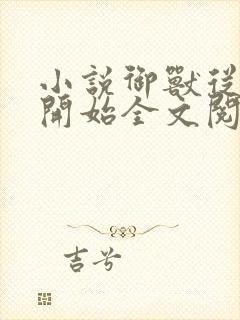 小說御獸從
開始全文閱
吉兮